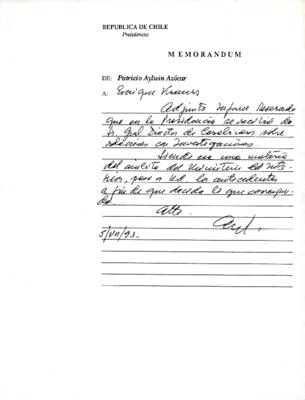 REPUBLICA DE CHILE
Presidencia
MEMORANDUM
DE: Patricio Aylwin Azócar
A: Enrique Krauss
Adjunto informe reservado
que en la Presidencia se recibió de
Sr. Gral. Director de Carabineros sobre
relaciones con Investigaciones.
Siendo en una materia
del ámbito del Ministerio del Inte-
rior, paso a Ud. los antecedentes
a fin de que decida lo que correspon-
da
Atte.
5/VII/93.-